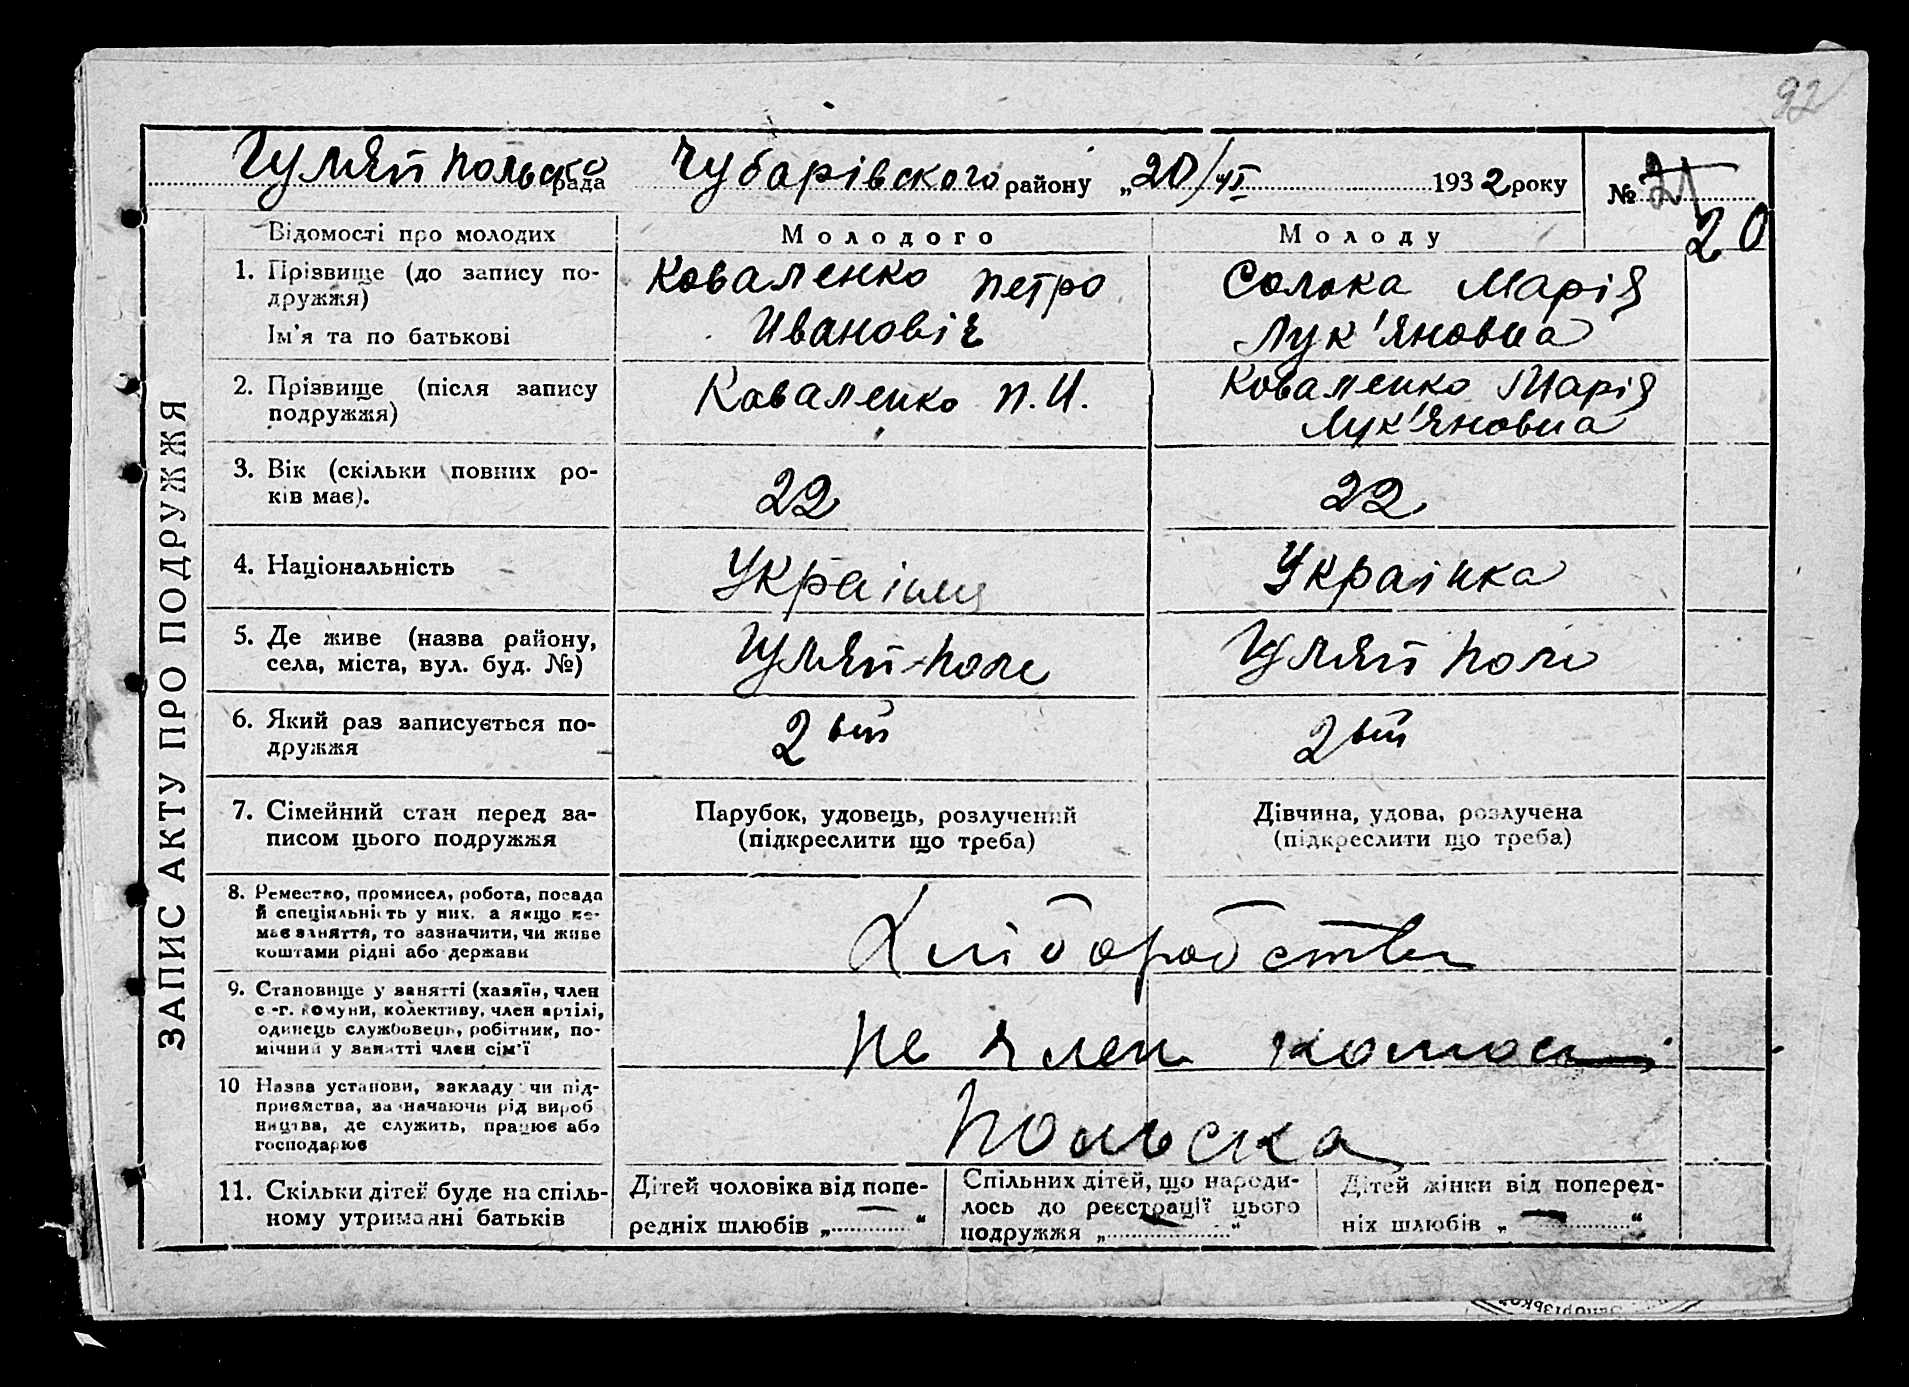 92
Гуляй польська рада Чубарівского району „20/VI 1932 року № 21
20
Відомості про молодих
Молодого
Молоду
1. Прізвище (до запису подружжя)
Ім'я та по батькові
Коваленко Петро
Иванович
Солока Марія
Лук'яновна
2. Прізвище (після запису
подружжя)
Коваленко П.И.
Коваленко Марія
Лук'яновна
3. Вік (скільки повних ро-
ків має).
22
22
4. Національність
Українц
Українка
5. Де живе (назва району,
села, міста, вул. буд. №)
Гуляй-поле
Гуляй поле
6. Який раз записується по-
дружжя
2 ый
2 ый
7. Сімейний стан перед за-
писом цього подружжя
Парубок, удовець, розлучений
(підкреслити що треба)
Дівчина, удова, розлучена
(підкреслити що треба)
8. Ремество, промисел, робота, посада
й спеціяльність у них, а якщо не-
має заняття, то зазначити, чи живе
коштами рідні або держави
Хліборобство
9. Становище у занятті (хазяїн, член
с.-г. комуни, колективу, член артілі,
одинець службовець, робітник, по-
мічний у занятті член сім'ї
не член
10 Назва установи, закладу чи під-
приємства, зазначаючи рід вироб
ництва, де служить, працює або
господарює
Польска
11. Скільки дітей буде на спіль-
ному утриманні батьків
Дітей чоловіка від попе-
редніх шлюбів „ — “
Спільних дітей, що народи-
лось до реєстрації цього
подружжя „ — “
Дітей жінки від поперед-
ніх шлюбів „ — “
ЗАПИС АКТУ ПРО ПОДРУЖЖЯ